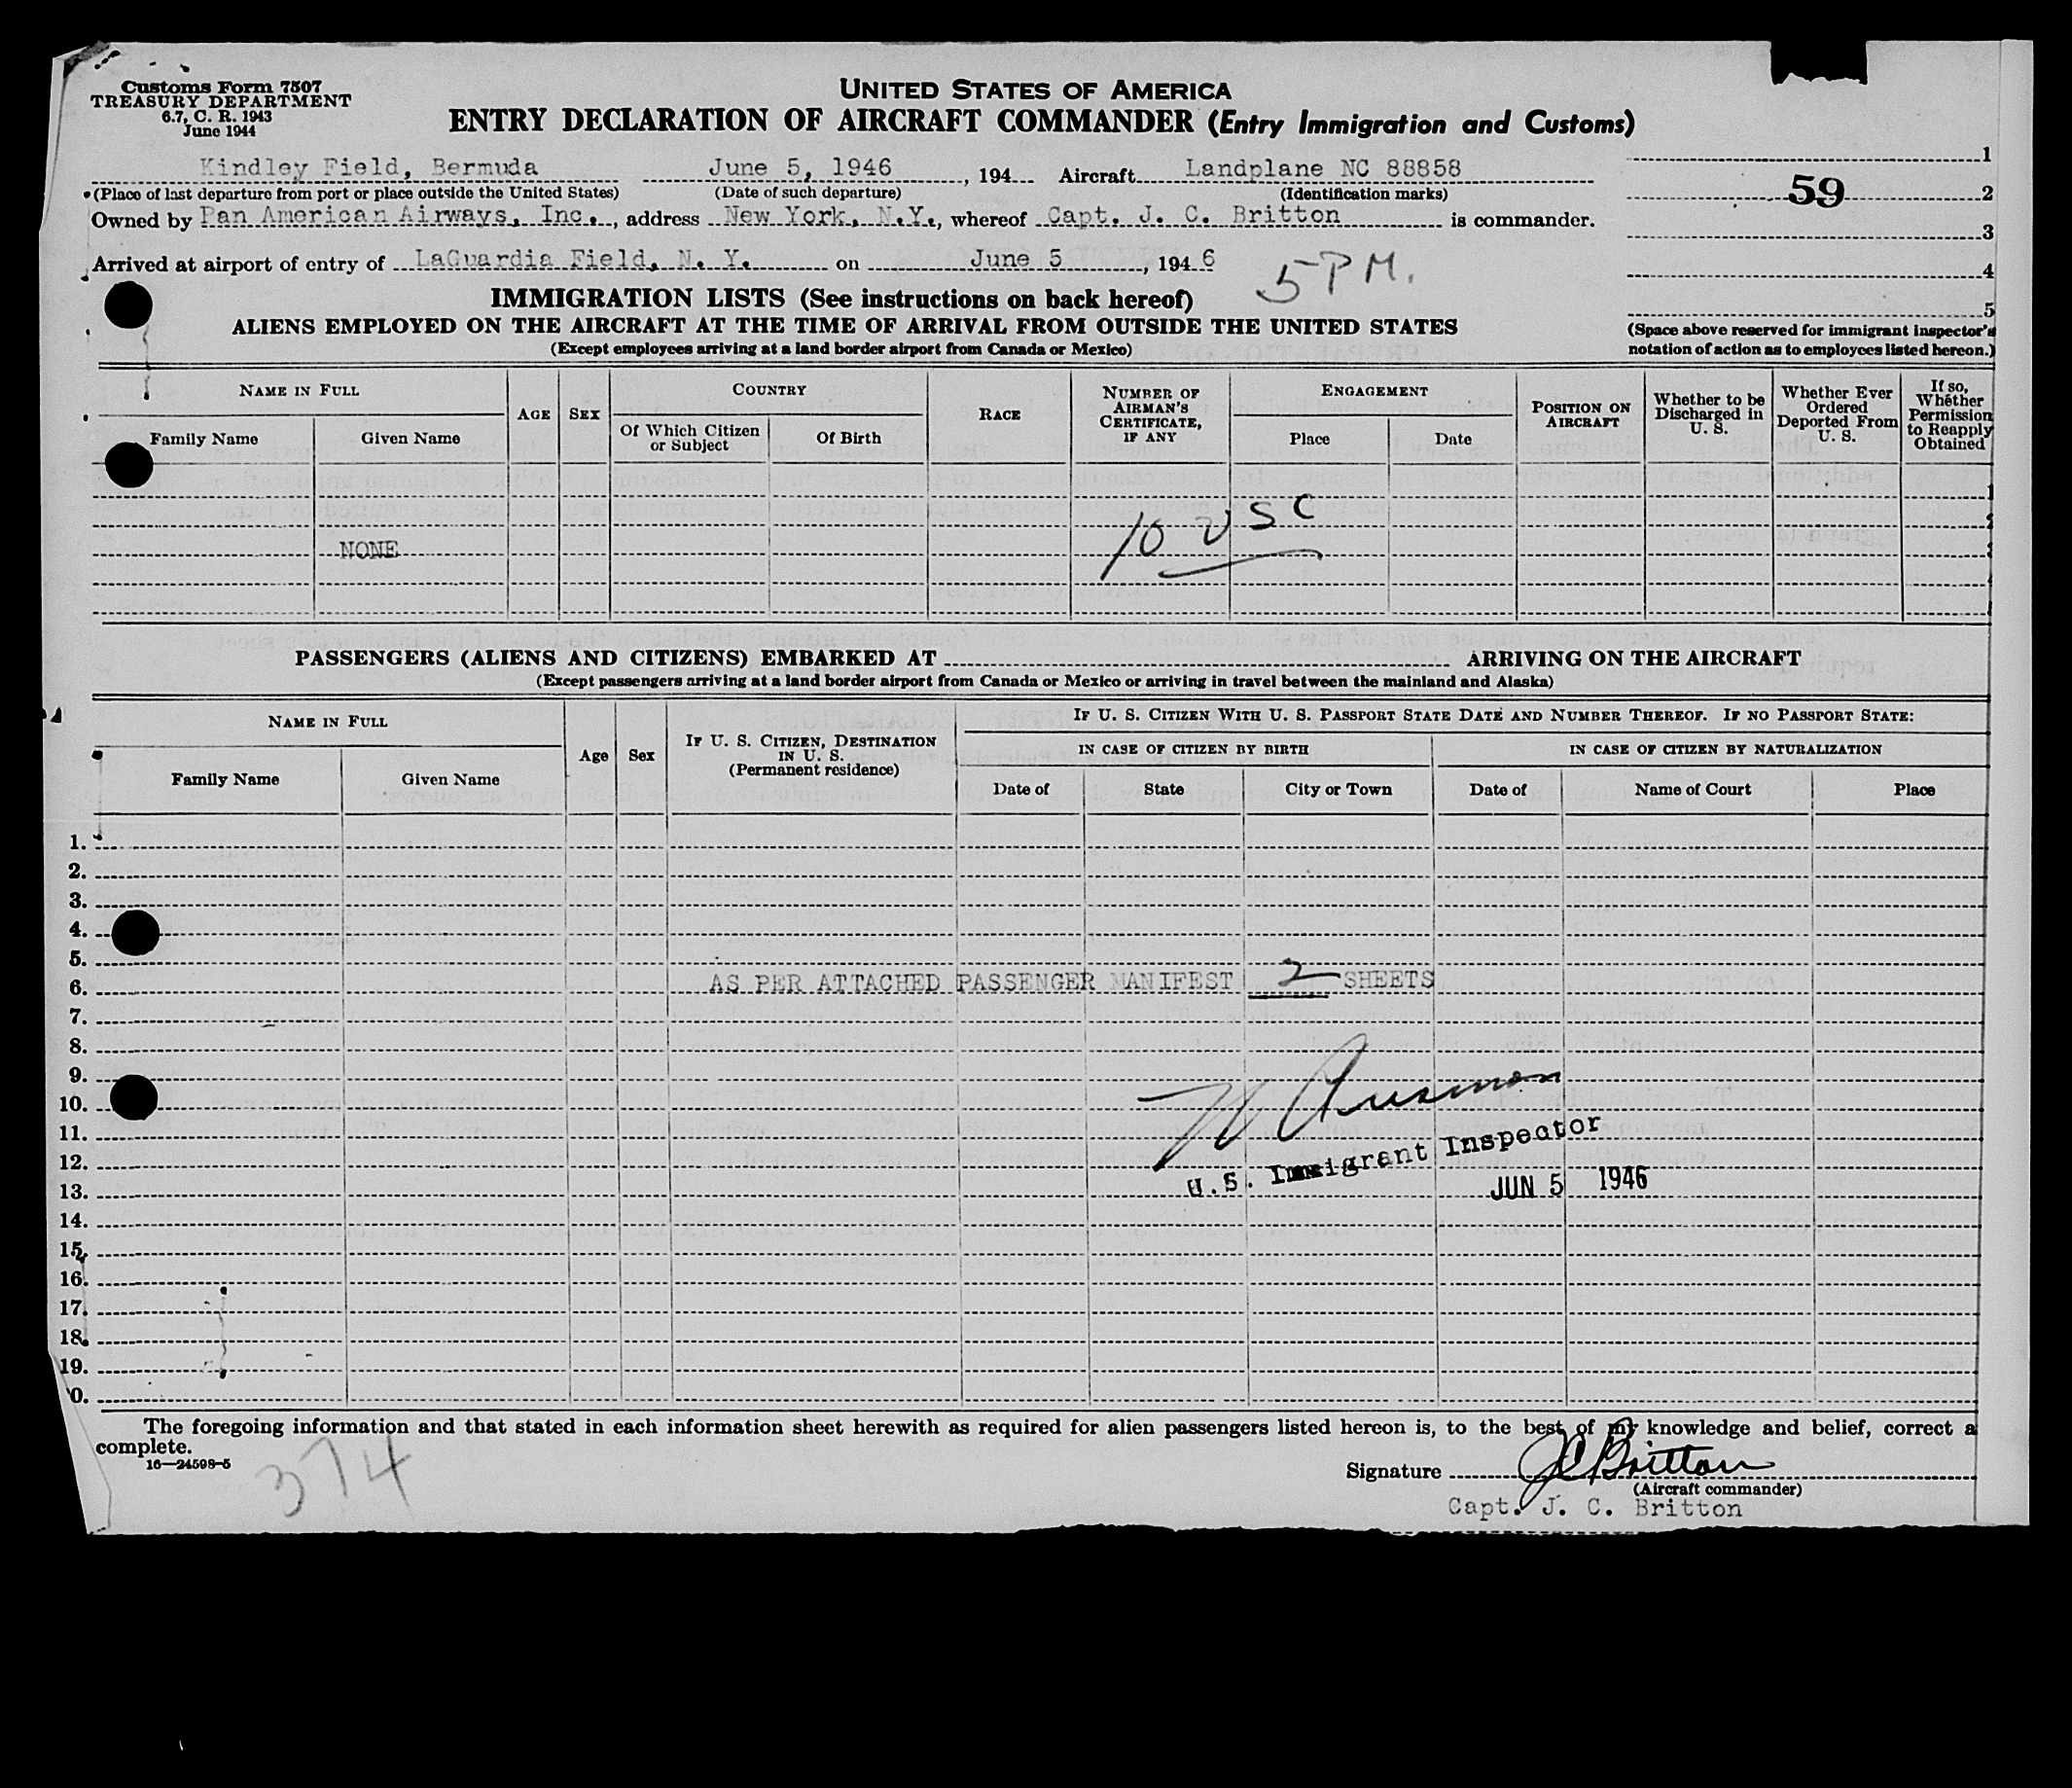 Customs Form 7507
TREASURY DEPARTMENT
6.7, C. R. 1943
June 1944
UNITED STATES OF AMERICA
ENTRY DECLARATION OF AIRCRAFT COMMANDER (Entry Immigration and Customs)
Kindley Field, Bermuda June 5, 1946, 194 Aircraft Landplane NC 88858
(Place of last departure from port or place outside the United States) (Date of such departure) (Identification marks)
Owned by Pan American Airways, Inc., address New York, N.Y., whereof Capt. J. C. Britton is commander.
Arrived at airport of entry of LaGuardia Field, N. Y. on June 5, 1946 5 PM.
1
59 2
3
4
5
(Space above reserved for immigrant inspector's
notation of action as to employees listed hereon.)
IMMIGRATION LISTS (See instructions on back hereof)
ALIENS EMPLOYED ON THE AIRCRAFT AT THE TIME OF ARRIVAL FROM OUTSIDE THE UNITED STATES
(Except employees arriving at a land border airport from Canada or Mexico)
NAME IN FULL
Family Name Given Name
AGE SEX
COUNTRY
Of Which Citizen or Subject Of Birth
RACE
NUMBER OF AIRMAN'S CERTIFICATE, IF ANY
ENGAGEMENT
Place Date
POSITION ON AIRCRAFT
Whether to be Discharged in U. S.
Whether Ever Ordered Deported From U. S.
If so, Whether Permission to Reapply Obtained
10 USC
NONE
PASSENGERS (ALIENS AND CITIZENS) EMBARKED AT ARRIVING ON THE AIRCRAFT
(Except passengers arriving at a land border airport from Canada or Mexico or arriving in travel between the mainland and Alaska)
NAME IN FULL
Family Name Given Name
Age Sex
IF U. S. CITIZEN, DESTINATION IN U. S. (Permanent residence)
IF U. S. CITIZEN WITH U. S. PASSPORT STATE DATE AND NUMBER THEREOF. IF NO PASSPORT STATE:
IN CASE OF CITIZEN BY BIRTH IN CASE OF CITIZEN BY NATURALIZATION
Date of State City or Town Date of Name of Court Place
1.
2.
3.
4.
5.
6. AS PER ATTACHED PASSENGER MANIFEST 2 SHEETS
7.
8.
9.
10.
11.
12. U.S. Immigrant Inspector
13. JUN 5 1946
14.
15.
16.
17.
18.
19.
0.
The foregoing information and that stated in each information sheet herewith as required for alien passengers listed hereon is, to the best of my knowledge and belief, correct a
complete.
16—24598-5
374
Signature JCBritton
(Aircraft commander)
Capt. J. C. Britton